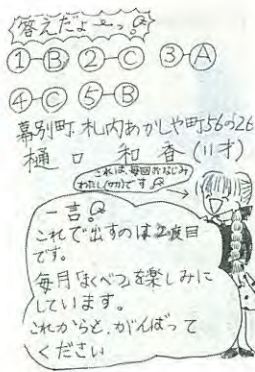 答えだよーっ。
①-Ⓑ ②-Ⓒ ③-Ⓐ
④-Ⓒ ⑤-Ⓑ
幕別町札内あかしや町56の26
樋口和香(11才)
これは、毎回おなじみ
わたし(カカ)です
一言。
これで出すのは2度目
です。
毎月「まくべつ」を楽しみに
しています。
これからと、がんばって
ください